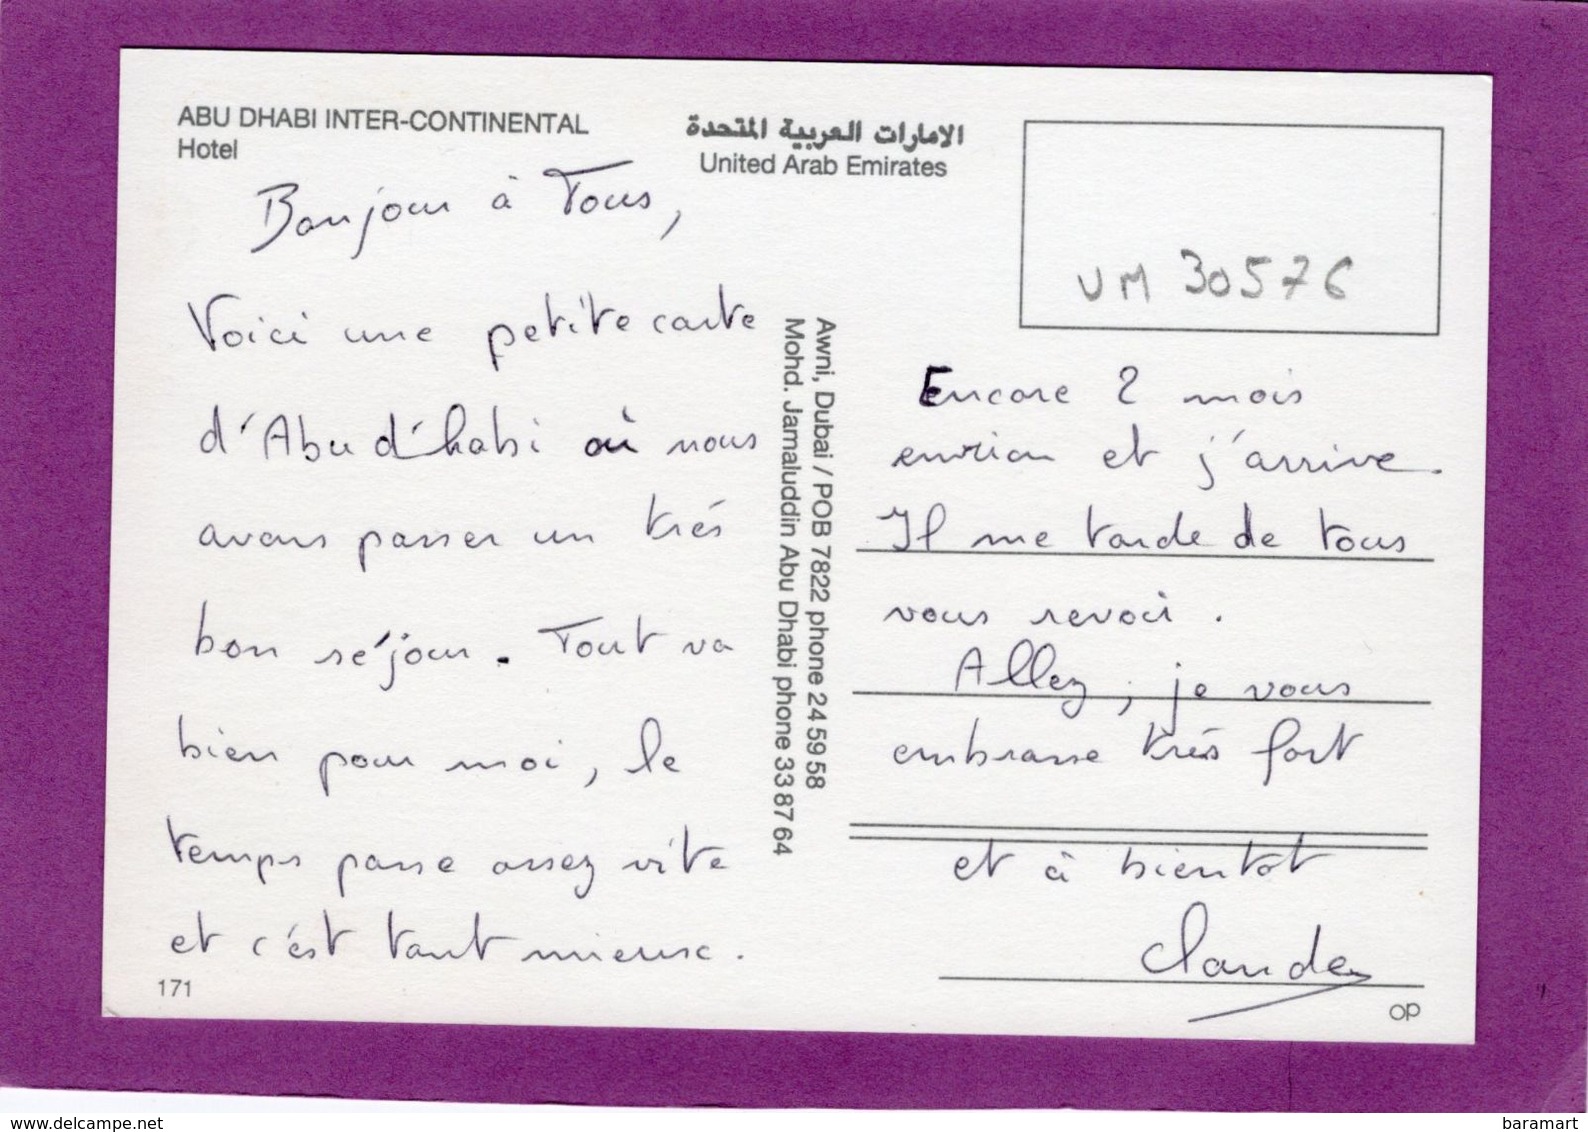 ABU DHABI INTER-CONTINENTAL
Hotel
الامارات العربية المتحدة
United Arab Emirates
VM 30576
Bonjour à Tous,
Voici une petite carte
d'Abu d'habi où nous
avons passer un trés
bon séjour. Tout va
bien pour moi, le
temps passe assez vite
et c'est tant mieux.
171
Awni, Dubai / POB 7822 phone 24 59 58
Mohd. Jamaluddin Abu Dhabi phone 33 87 64
Encore 2 mois
environ et j'arrive.
Il me tarde de tous
vous revoir.
Allez, je vous
embrasse trés fort
et à bientot
Claude
OP
delcampe.net
baramart